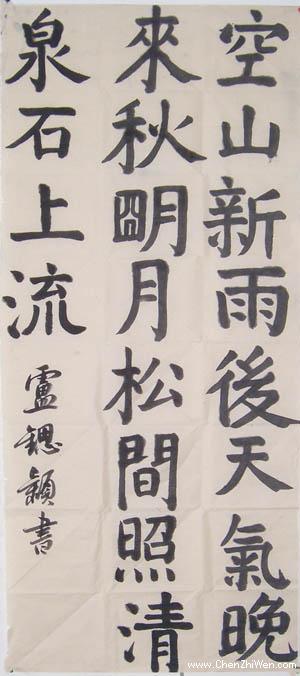 空山新雨後天氣晚
來秋朙月松間照清
泉石上流
盧穎書
www.ChenZhiWen.com